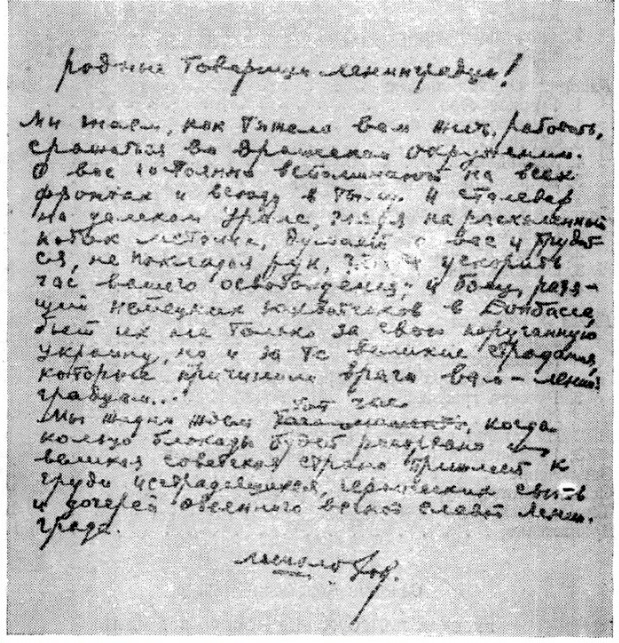 родные товарищи ленинградцы!
Мы знаем, как тяжело вам жить, работать,
сражаться во вражеском окружении.
О вас постоянно вспоминают на всех
фронтах и всюду в тылу. И сталевар
на далеком Урале, глядя на расплавленный
поток металла, думает о вас и трудит-
ся, не покладая рук, чтоб ускорить
час вашего освобождения; и боец, разя-
щий немецких захватчиков в Донбассе,
бьет их не только за свою поруганную
Украину, но и за те великие страдания,
которые причинили враги вам – ленин-
градцам...
Мы жадно ждем тот час, когда
кольцо блокады будет разорвано и
великая советская страна прижмет к
груди исстрадавшихся, героических сынов
и дочерей овеянного вечной славой Ленин-
града.